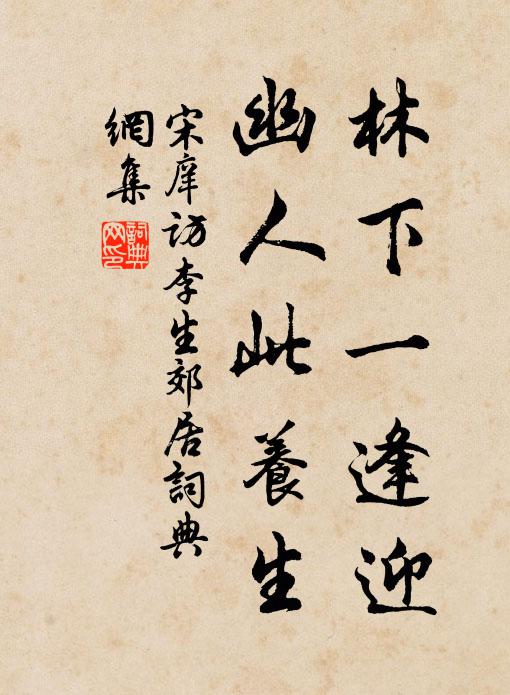 林下一逢迎
幽人此養生
宋庠訪李生郊居詞典
網集
詞典
网印